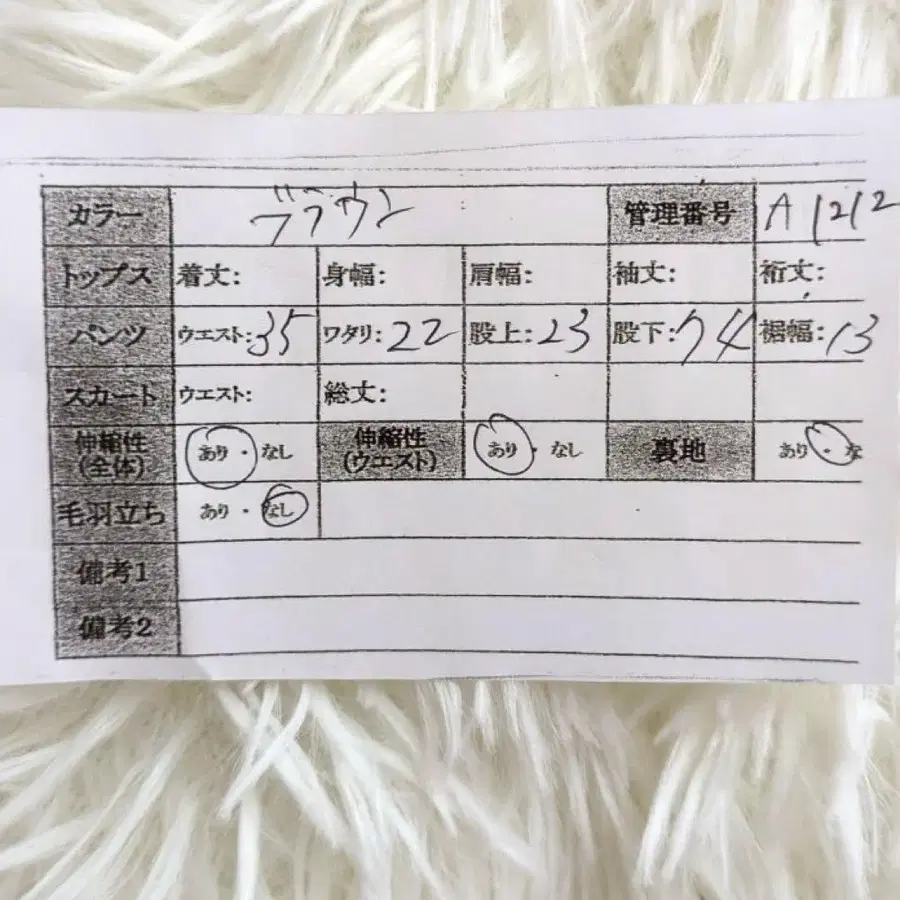 カラー ブラウン 管理番号 A1212
トップス 着丈: 身幅: 肩幅: 袖丈: 裄丈:
パンツ ウエスト:35 ワタリ:22 股上:23 股下:74 裾幅:13
スカート ウエスト: 総丈:
伸縮性(全体) あり・なし 伸縮性(ウエスト) あり・なし 裏地 あり・な
毛羽立ち あり・なし
備考1
備考2